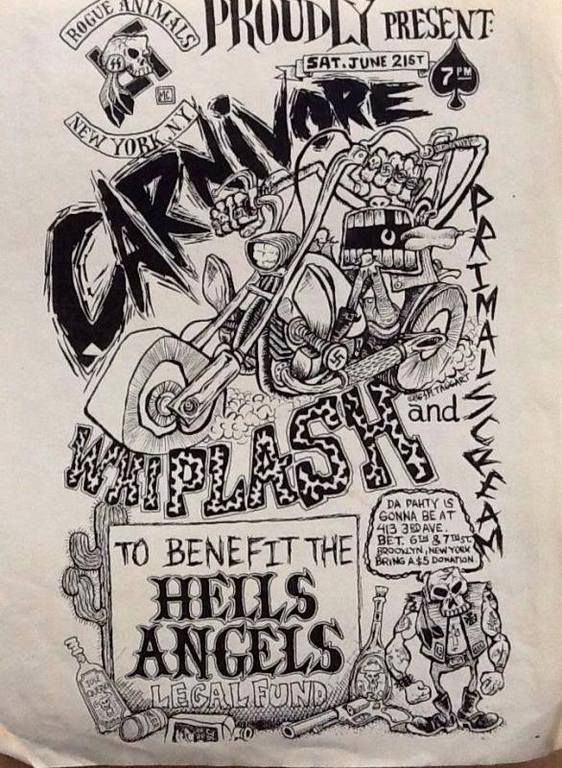 ROGUE ANIMALS
MC
NEW YORK N.Y.
PROUDLY PRESENT:
SAT. JUNE 21ST
7 PM
CARNIVORE
PRIMAL SCREAM
WHIPLASH
and
DA PAHTY IS
GONNA BE AT
413 3RD AVE.
BET. 6TH & 7TH ST.
BROOKLYN, NEW YORK
BRING A $5 DONATION
TO BENEFIT THE
HELLS
ANGELS
LEGAL FUND